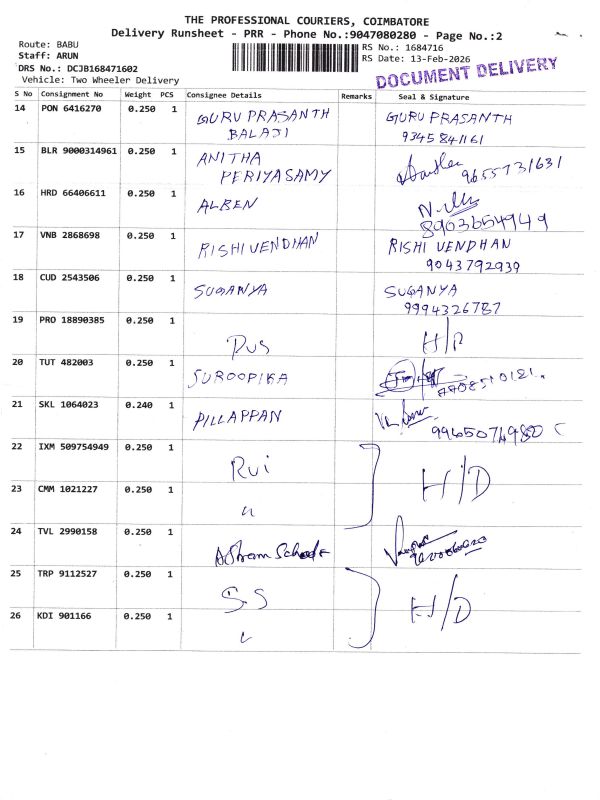 THE PROFESSIONAL COURIERS, COIMBATORE
Delivery Runsheet - PRR - Phone No.:9047080280 - Page No.:2
Route: BABU
Staff: ARUN
DRS No.: DCJB168471602
Vehicle: Two Wheeler Delivery
RS No.: 1684716
RS Date: 13-Feb-2026
DOCUMENT DELIVERY
S No Consignment No Weight PCS Consignee Details Remarks Seal & Signature
14 PON 6416270 0.250 1 GURU PRASANTH GURU PRASANTH
BALAJI 9345841161
15 BLR 9000314961 0.250 1 ANITHA
PERIYASAMY 9655731631
16 HRD 66406611 0.250 1 ALBEN
8903654949
17 VNB 2868698 0.250 1 RISHIVENDHAN RISHI VENDHAN
9043792939
18 CUD 2543506 0.250 1 SUGANYA SUGANYA
9994326787
19 PRO 18890385 0.250 1
20 TUT 482003 0.250 1 SUROOPIKA
21 SKL 1064023 0.240 1 PILLAPPAN
22 IXM 509754949 0.250 1 H/D
23 CMM 1021227 0.250 1 "
24 TVL 2990158 0.250 1
25 TRP 9112527 0.250 1 S.S H/D
26 KDI 901166 0.250 1 "